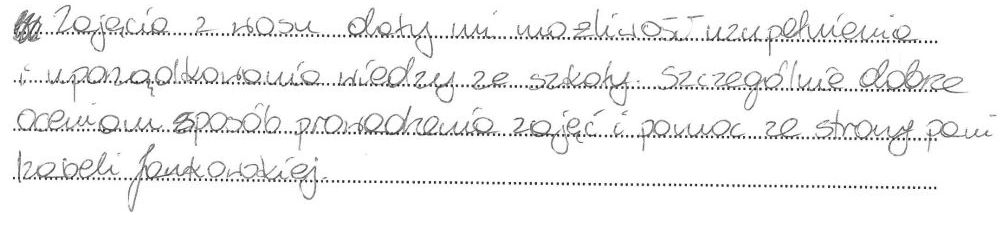 Zajęcia z wosu dały mi możliwość uzupełnienia
i uporządkowania wiedzy ze szkoły. Szczególnie dobrze
oceniam sposób prowadzenia zajęć i pomoc ze strony pani
Izabeli Jankowskiej.